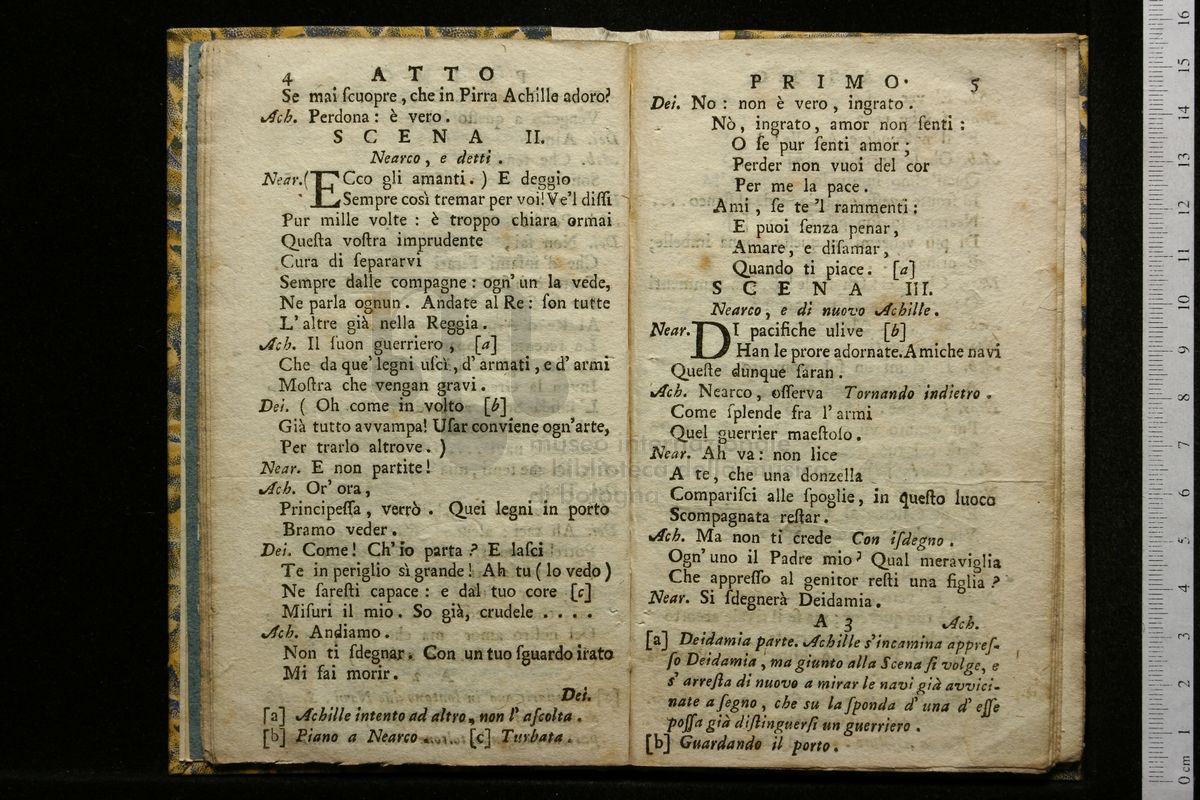 4 ATTO
Se mai ſcuopre, che in Pirra Achille adoro?
Ach. Perdona: è vero.
SCENA II.
Nearco, e detti.
Near. (ECco gli amanti.) E deggio
Sempre così tremar per voi! Ve'l diſſi
Pur mille volte: è troppo chiara ormai
Queſta voſtra imprudente
Cura di ſepararvi
Sempre dalle compagne: ogn' un la vede,
Ne parla ognun. Andate al Re: ſon tutte
L'altre già nella Reggia.
Ach. Il ſuon guerriero, [a]
Che da que' legni uſcì, d'armati, e d'armi
Moſtra che vengan gravi.
Dei. (Oh come in volto [b]
Già tutto avvampa! Uſar conviene ogn'arte,
Per trarlo altrove.)
Near. E non partite!
Ach. Or' ora,
Principeſſa, verrò. Quei legni in porto
Bramo veder.
Dei. Come! Ch'io parta? E laſci
Te in periglio sì grande! Ah tu (lo vedo)
Ne fareſti capace: e dal tuo core [c]
Miſuri il mio. So già, crudele . . . .
Ach. Andiamo.
Non ti ſdegnar. Con un tuo ſguardo irato
Mi fai morir.
Dei.
[a] Achille intento ad altro, non l'aſcolta.
[b] Piano a Nearco. [c] Turbata.
PRIMO. 5
Dei. No: non è vero, ingrato.
Nò, ingrato, amor non ſenti:
O ſe pur ſenti amor;
Perder non vuoi del cor
Per me la pace.
Ami, ſe te 'l rammenti:
E puoi ſenza penar,
Amare, e diſamar,
Quando ti piace. [a]
SCENA III.
Nearco, e di nuovo Achille.
Near. DI pacifiche ulive [b]
Han le prore adornate. Amiche navi
Queſte dunque ſaran.
Ach. Nearco, oſſerva Tornando indietro.
Come ſplende fra l'armi
Quel guerrier maeſtoſo.
Near. Ah va: non lice
A te, che una donzella
Compariſci alle ſpoglie, in queſto luoco
Scompagnata reſtar.
Ach. Ma non ti crede Con iſdegno.
Ogn'uno il Padre mio? Qual meraviglia
Che appreſſo al genitor reſti una figlia?
Near. Si ſdegnerà Deidamia.
A 3 Ach.
[a] Deidamia parte. Achille s'incamina appreſ-
ſo Deidamia, ma giunto alla Scena ſi volge, e
s'arreſta di nuovo a mirar le navi già avvici-
nate a ſegno, che su la ſponda d'una d'eſſe
poſſa già diſtinguerſi un guerriero.
[b] Guardando il porto.
museo internazionale
e biblioteca della musica
di bologna
0 cm 1 2 3 4 5 6 7 8 9 10 11 12 13 14 15 16